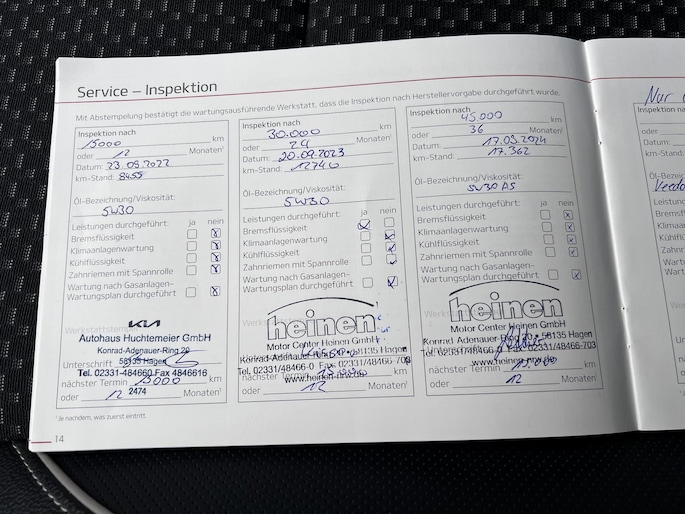 Service – Inspektion
Mit Abstempelung bestätigt die wartungsausführende Werkstatt, dass die Inspektion nach Herstellervorgabe durchgeführt wurde.
Inspektion nach
15000 km
oder 12 Monaten¹
Datum: 23.09.2022
km-Stand: 8455
Öl-Bezeichnung/Viskosität:
5W30
Leistungen durchgeführt: ja nein
Bremsflüssigkeit
Klimaanlagenwartung
Kühlflüssigkeit
Zahnriemen mit Spannrolle
Wartung nach Gasanlagen-
Wartungsplan durchgeführt
KIA
Autohaus Huchtemeier GmbH
Konrad-Adenauer-Ring 29
Unterschrift 58135 Hagen
Tel. 02331-484660 Fax 4846616
nächster Termin 15000 km
oder 12 2474 Monaten¹
Inspektion nach
30.000 km
oder 24 Monaten¹
Datum: 20.09.2023
km-Stand: 12740
Öl-Bezeichnung/Viskosität:
5W30
Leistungen durchgeführt: ja nein
Bremsflüssigkeit
Klimaanlagenwartung
Kühlflüssigkeit
Zahnriemen mit Spannrolle
Wartung nach Gasanlagen-
Wartungsplan durchgeführt
heinen
Motor Center Heinen GmbH
Konrad-Adenauer- 58135 Hagen
Tel. 02331/48466-0 Fax 02331/48466-703
www.heinen-nrw.de
nächster Termin 15.000 km
oder 12 Monaten¹
Inspektion nach
45.000 km
oder 36 Monaten¹
Datum: 17.09.2024
km-Stand: 17.362
Öl-Bezeichnung/Viskosität:
5W30 A5
Leistungen durchgeführt: ja nein
Bremsflüssigkeit
Klimaanlagenwartung
Kühlflüssigkeit
Zahnriemen mit Spannrolle
Wartung nach Gasanlagen-
Wartungsplan durchgeführt
heinen
Motor Center Heinen GmbH
Konrad-Adenauer-Ring • 58135 Hagen
Tel. 02331/48466-0 02331/48466-703
www.heinen-nrw.de
nächster Termin 15.000 km
oder 12 Monaten¹
¹Je nachdem, was zuerst eintritt.
14
Nur
Inspektion
oder
Datum:
km-Stand
Öl-Bezei
Veedo
Leistung
Bremsfl
Klimaanl
Kühlflüs
Zahnrie
Wartung
Wartung